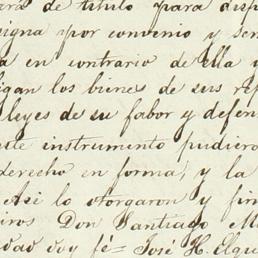 de titulo para disp
signa por convenio y sen
a en contrario de ella y
igan los bienes de sus rep
leyes de su fabor y defen
te instrumento pudiero
derecho en forma, y la
Asi lo otorgaron y fir
Don Santiago M
doy fé= José H. Elgue